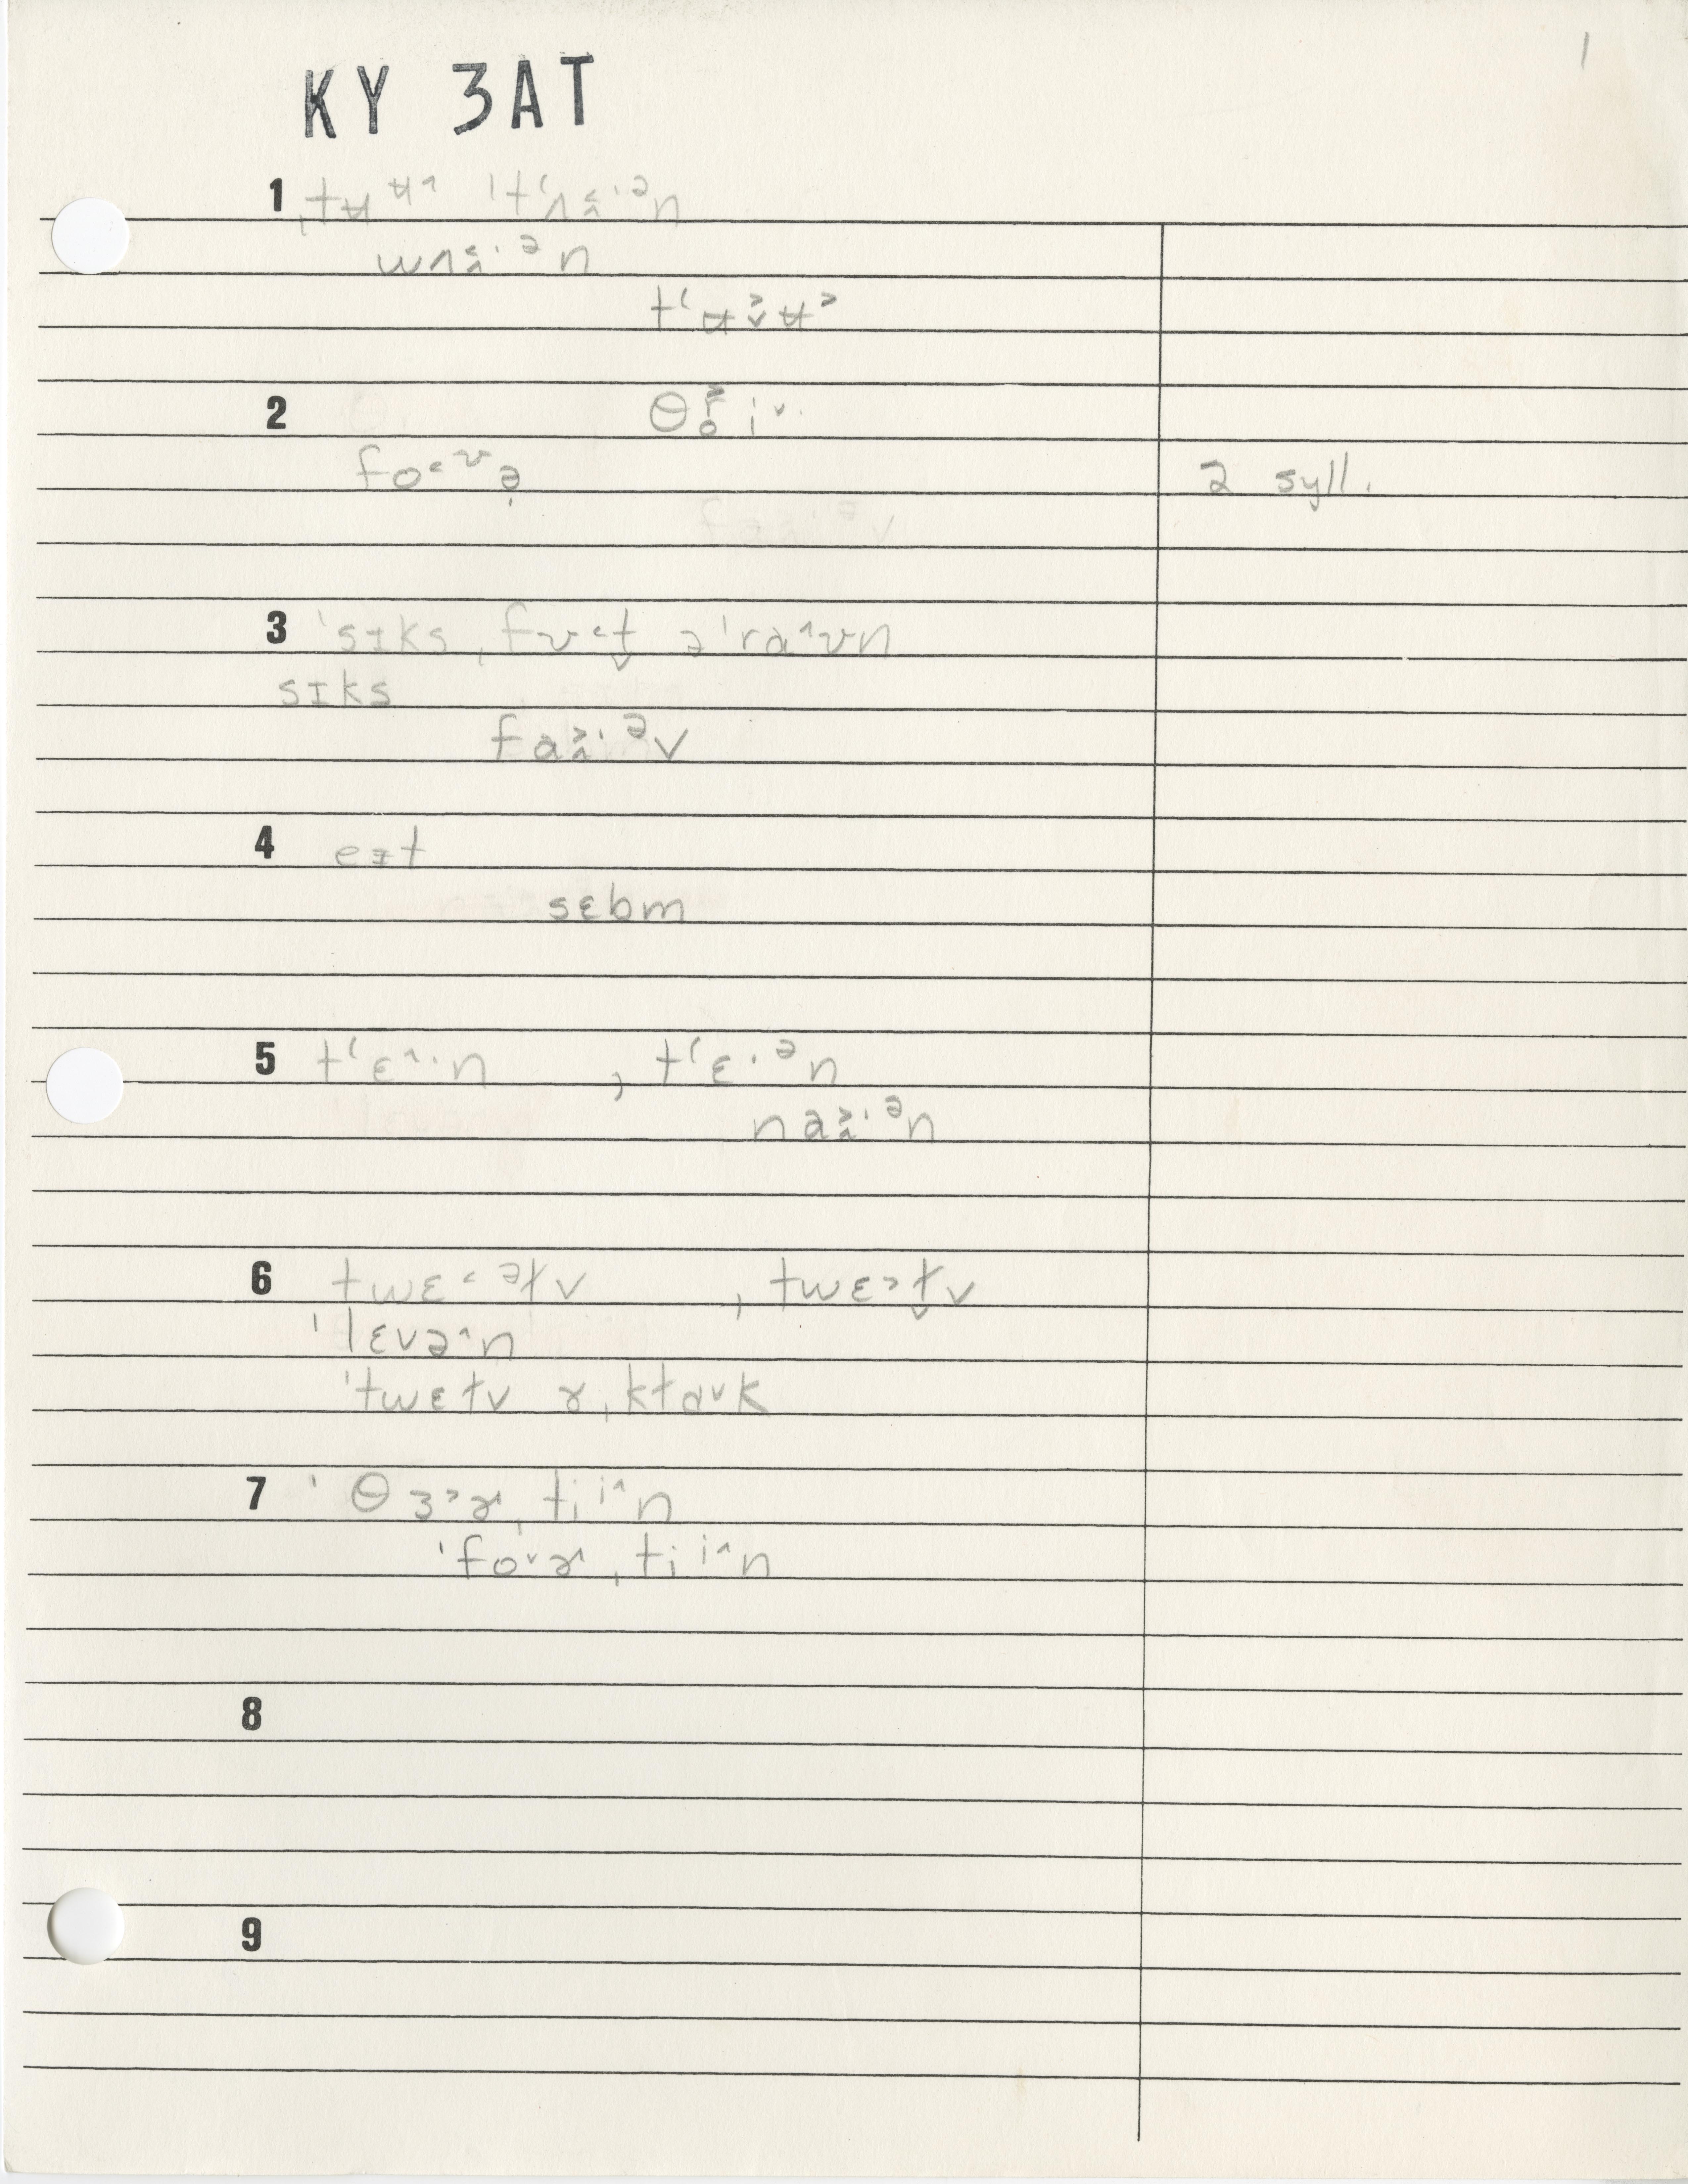 1
KY 3AT
1 ˌtʉʉ^ ˈtʻʌɛ̭̂·ᵊn
wʌɛ̭̂·ᵊn
tʻʉ˃̬ʉ˃
2 θr̥˃i˅·
fo˂ʊə̣ 2 syll.
3 ˈsɪks ˌfʊ˂t̬ əˈra^ʊn
sɪks
fa˃̭·ᵊv
4 eɪt
sɛbm
5 tʻɛ^·n , tʻɛ·ᵊn
na˃̭·ᵊn
6 twɛ˂ᵊtv , twɛ˃t̬v
ˈlɛvə^n
ˈtwɛtv ɚˌklɑ˅k
7 ˈθɜ˃ɚˌtii^n
ˈfo˅ɚˌtii^n
8
9